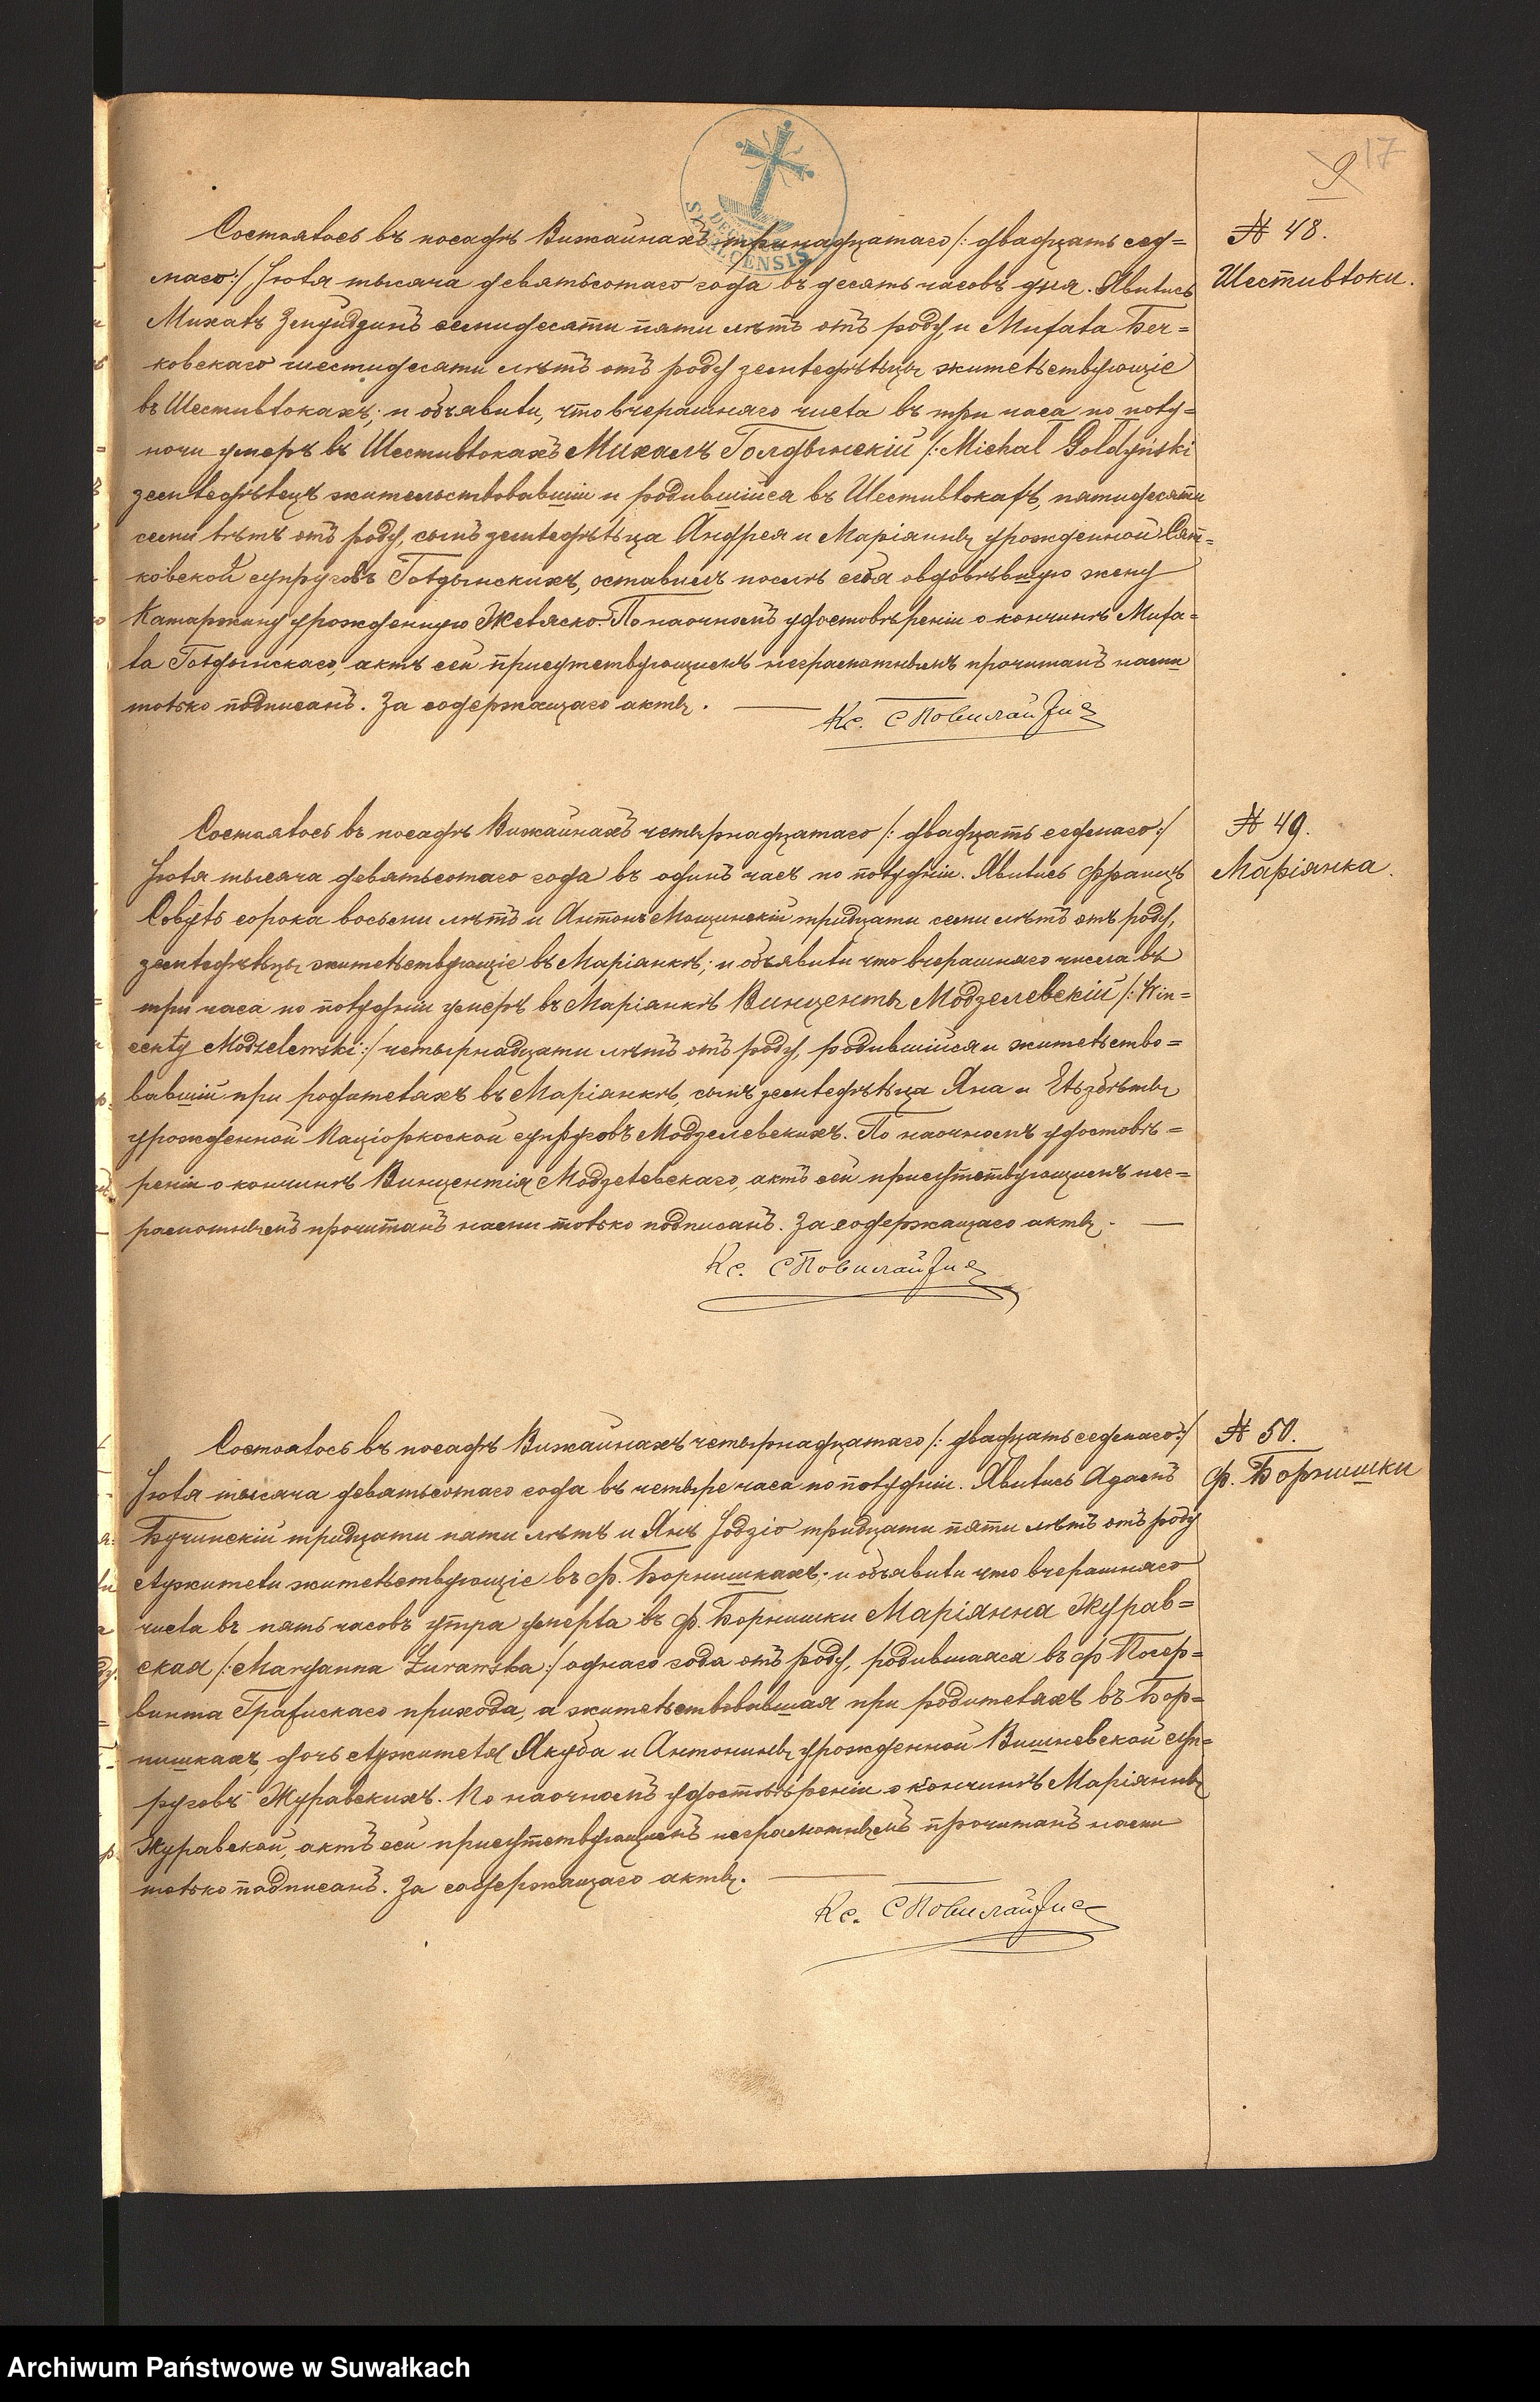 9 17
DECAN
SUVALCENSIS
№ 48.
Шестивлоки.
Состоялось въ посадѣ Вижайнахъ тринадцатаго /: двадцать сед=
маго :/ Іюля тысяча девятьсотаго года въ десять часовъ дня. Явились
Михалъ семидесяти пяти лѣтъ отъ роду, и Михала Бер=
ковскаго шестидесяти лѣтъ отъ роду земледѣльцы жительствующіе
въ Шестивлокахъ; и объявили, что вчерашняго числа въ три часа по полу=
ночи умеръ въ Шестивлокахъ Михалъ Голдынскій /: Michał Gołdyński
земледѣлецъ жительствовавшій и родившійся въ Шестивлокахъ, пятидесяти
семи лѣтъ отъ роду, сынъ земледѣльца Андрея и Маріянны урожденной Сян=
ковской супруговъ Голдынскихъ, оставилъ послѣ себя овдовѣвшую жену
Катаржину урожденную Желяско. По наочномъ удостовѣреніи о кончинѣ Миха=
ла Голдынскаго, актъ сей присутствующимъ неграмотнымъ прочитанъ нами
только подписанъ. За содержащаго акты.
Кс. С Повилайтис
№ 49.
Маріянка.
Состоялось въ посадѣ Вижайнахъ четырнадцатаго /: двадцать седьмаго :/
Іюля тысяча девятьсотаго года въ одинъ часъ по полудніи. Явились Францъ
Собуль сорока восьми лѣтъ и Антонъ Мощинскій тридцати семи лѣтъ отъ роду,
земледѣльцы жительствующіе въ Маріанкѣ; и объявили что вчерашняго числа въ
три часа по полудніи умеръ въ Маріанкѣ Винценты Модзелевскій /: Win=
centy Modzelewski :/ четырнадцати лѣтъ отъ роду, родившійся и жительство=
вавшій при родителяхъ въ Маріянкѣ, сынъ земледѣльца Яна и Ельзбѣты
урожденной супруговъ Модзелевскихъ. По наочномъ удостовѣ=
реніи о кончинѣ Винцентія Модзелевскаго, актъ сей присутствующимъ нег=
рамотнымъ прочитанъ нами только подписанъ. За содержащаго акты.
Кс. С Повилайтис
№ 50.
ф. Борнишки
Состоялось въ посадѣ Вижайнахъ четырнадцатаго /: двадцать седьмаго :/
Іюля тысяча девятьсотаго года въ четыре часа по полудніи. Явились Адамъ
Бучинскій тридцати пяти лѣтъ и Янъ Іодзіо тридцати пяти лѣтъ отъ роду
служители жительствующіе въ ф. Борнишкахъ; и объявили что вчерашняго
числа въ пять часовъ утра умерла въ ф. Борнишки Маріянна Журав=
ская /: Maryanna Żurawska :/ однаго года отъ роду, родившаяся въ ф Посер=
винта Графискаго прихода, а жительствовавшая при родителяхъ въ Бор=
нишкахъ, дочь служителя Якуба и Антонины урожденной Вишневской суп=
руговъ Журавскихъ. По наочномъ удостовѣреніи о кончинѣ Маріянны
Журавской, актъ сей присутствующимъ неграмотнымъ прочитанъ нами
только подписанъ. За содержащаго акты.
Кс. С Повилайтис
Archiwum Państwowe w Suwałkach